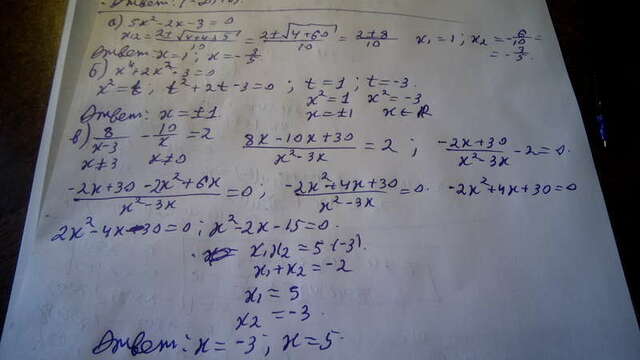 Ответ:
а) 5x²-2x-3=0
x₂ = 2±√(4+4·3·5)/10 = 2±√(4+60)/10 = 2±8/10 x₁=1; x₂=-6/10=
=-3/5
Ответ x=1; x=-3/5
б) x⁴+2x²-3=0
x²=t; t²+2t-3=0; t=1; t=-3.
x²=1 x²=-3
Ответ: x=±1 x=±1 x∈R
в) 8/(x-3) - 10/x = 2 (8x-10x+30)/(x²-3x) = 2; (-2x+30)/(x²-3x) - 2=0.
x≠3 x≠0
(-2x+30-2x²+6x)/(x²-3x) = 0; (-2x²+4x+30)/(x²-3x) = 0. -2x²+4x+30=0
2x²-4x-30=0; x²-2x-15=0.
x₁x₂=5·(-3).
x₁+x₂=-2
x₁=5
x₂=-3.
Ответ: x=-3; x=5.